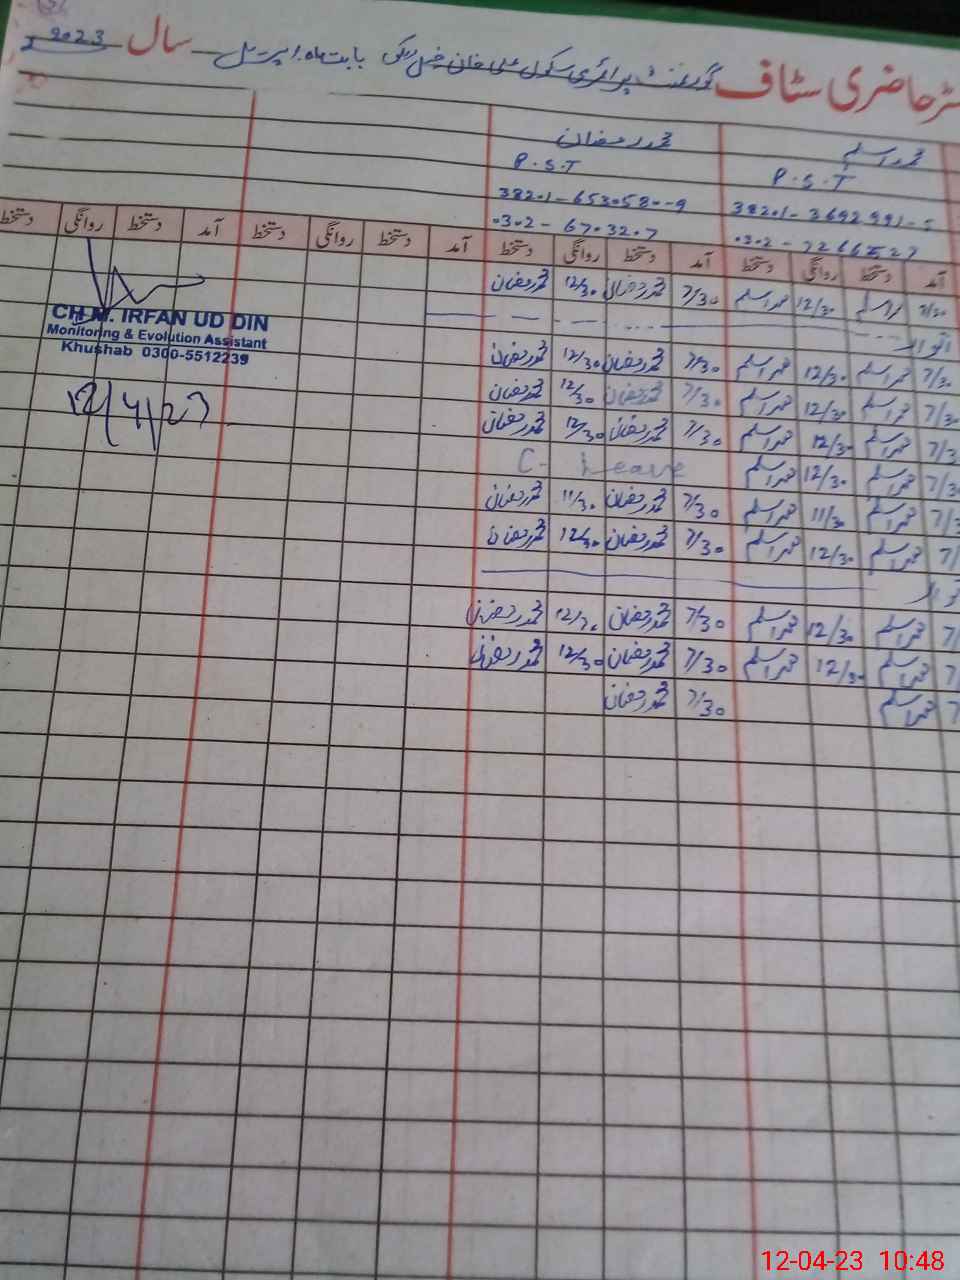 رجسٹر حاضری سٹاف گورنمنٹ پرائمری سکول بابت ماہ اپریل سال 2023
محمد اسلم محمد رمضان
P.S.T P.S.T
38201-3692991-5 38201-6530580-9
0302-6703207
آمد دستخط روانگی دستخط آمد دستخط روانگی دستخط آمد دستخط روانگی دستخط آمد دستخط روانگی دستخط
7/30 محمد اسلم 12/30 محمد اسلم 7/30 محمد رمضان 12/30 محمد رمضان
اتوار
7/30 محمد اسلم 12/30 محمد اسلم 7/30 محمد رمضان 12/30 محمد رمضان
7/30 محمد اسلم 12/30 محمد اسلم 7/30 محمد رمضان 12/30 محمد رمضان
7/3 محمد اسلم 12/30 محمد اسلم 7/30 محمد رمضان 12/30 محمد رمضان
7/3 محمد اسلم 12/30 محمد اسلم C- Leave
7/3 محمد اسلم 11/30 محمد اسلم 7/30 محمد رمضان 11/30 محمد رمضان
7/ محمد اسلم 12/30 محمد اسلم 7/30 محمد رمضان 12/30 محمد رمضان
اتوار
7/ محمد اسلم 12/30 محمد اسلم 7/30 محمد رمضان 12/30 محمد رمضان
7/ محمد اسلم 12/30 محمد اسلم 7/30 محمد رمضان 12/30 محمد رمضان
7 محمد اسلم 7/30 محمد رمضان
CH M. IRFAN UD DIN
Monitoring & Evolution Assistant
Khushab 0300-5512239
12/4/23
12-04-23 10:48